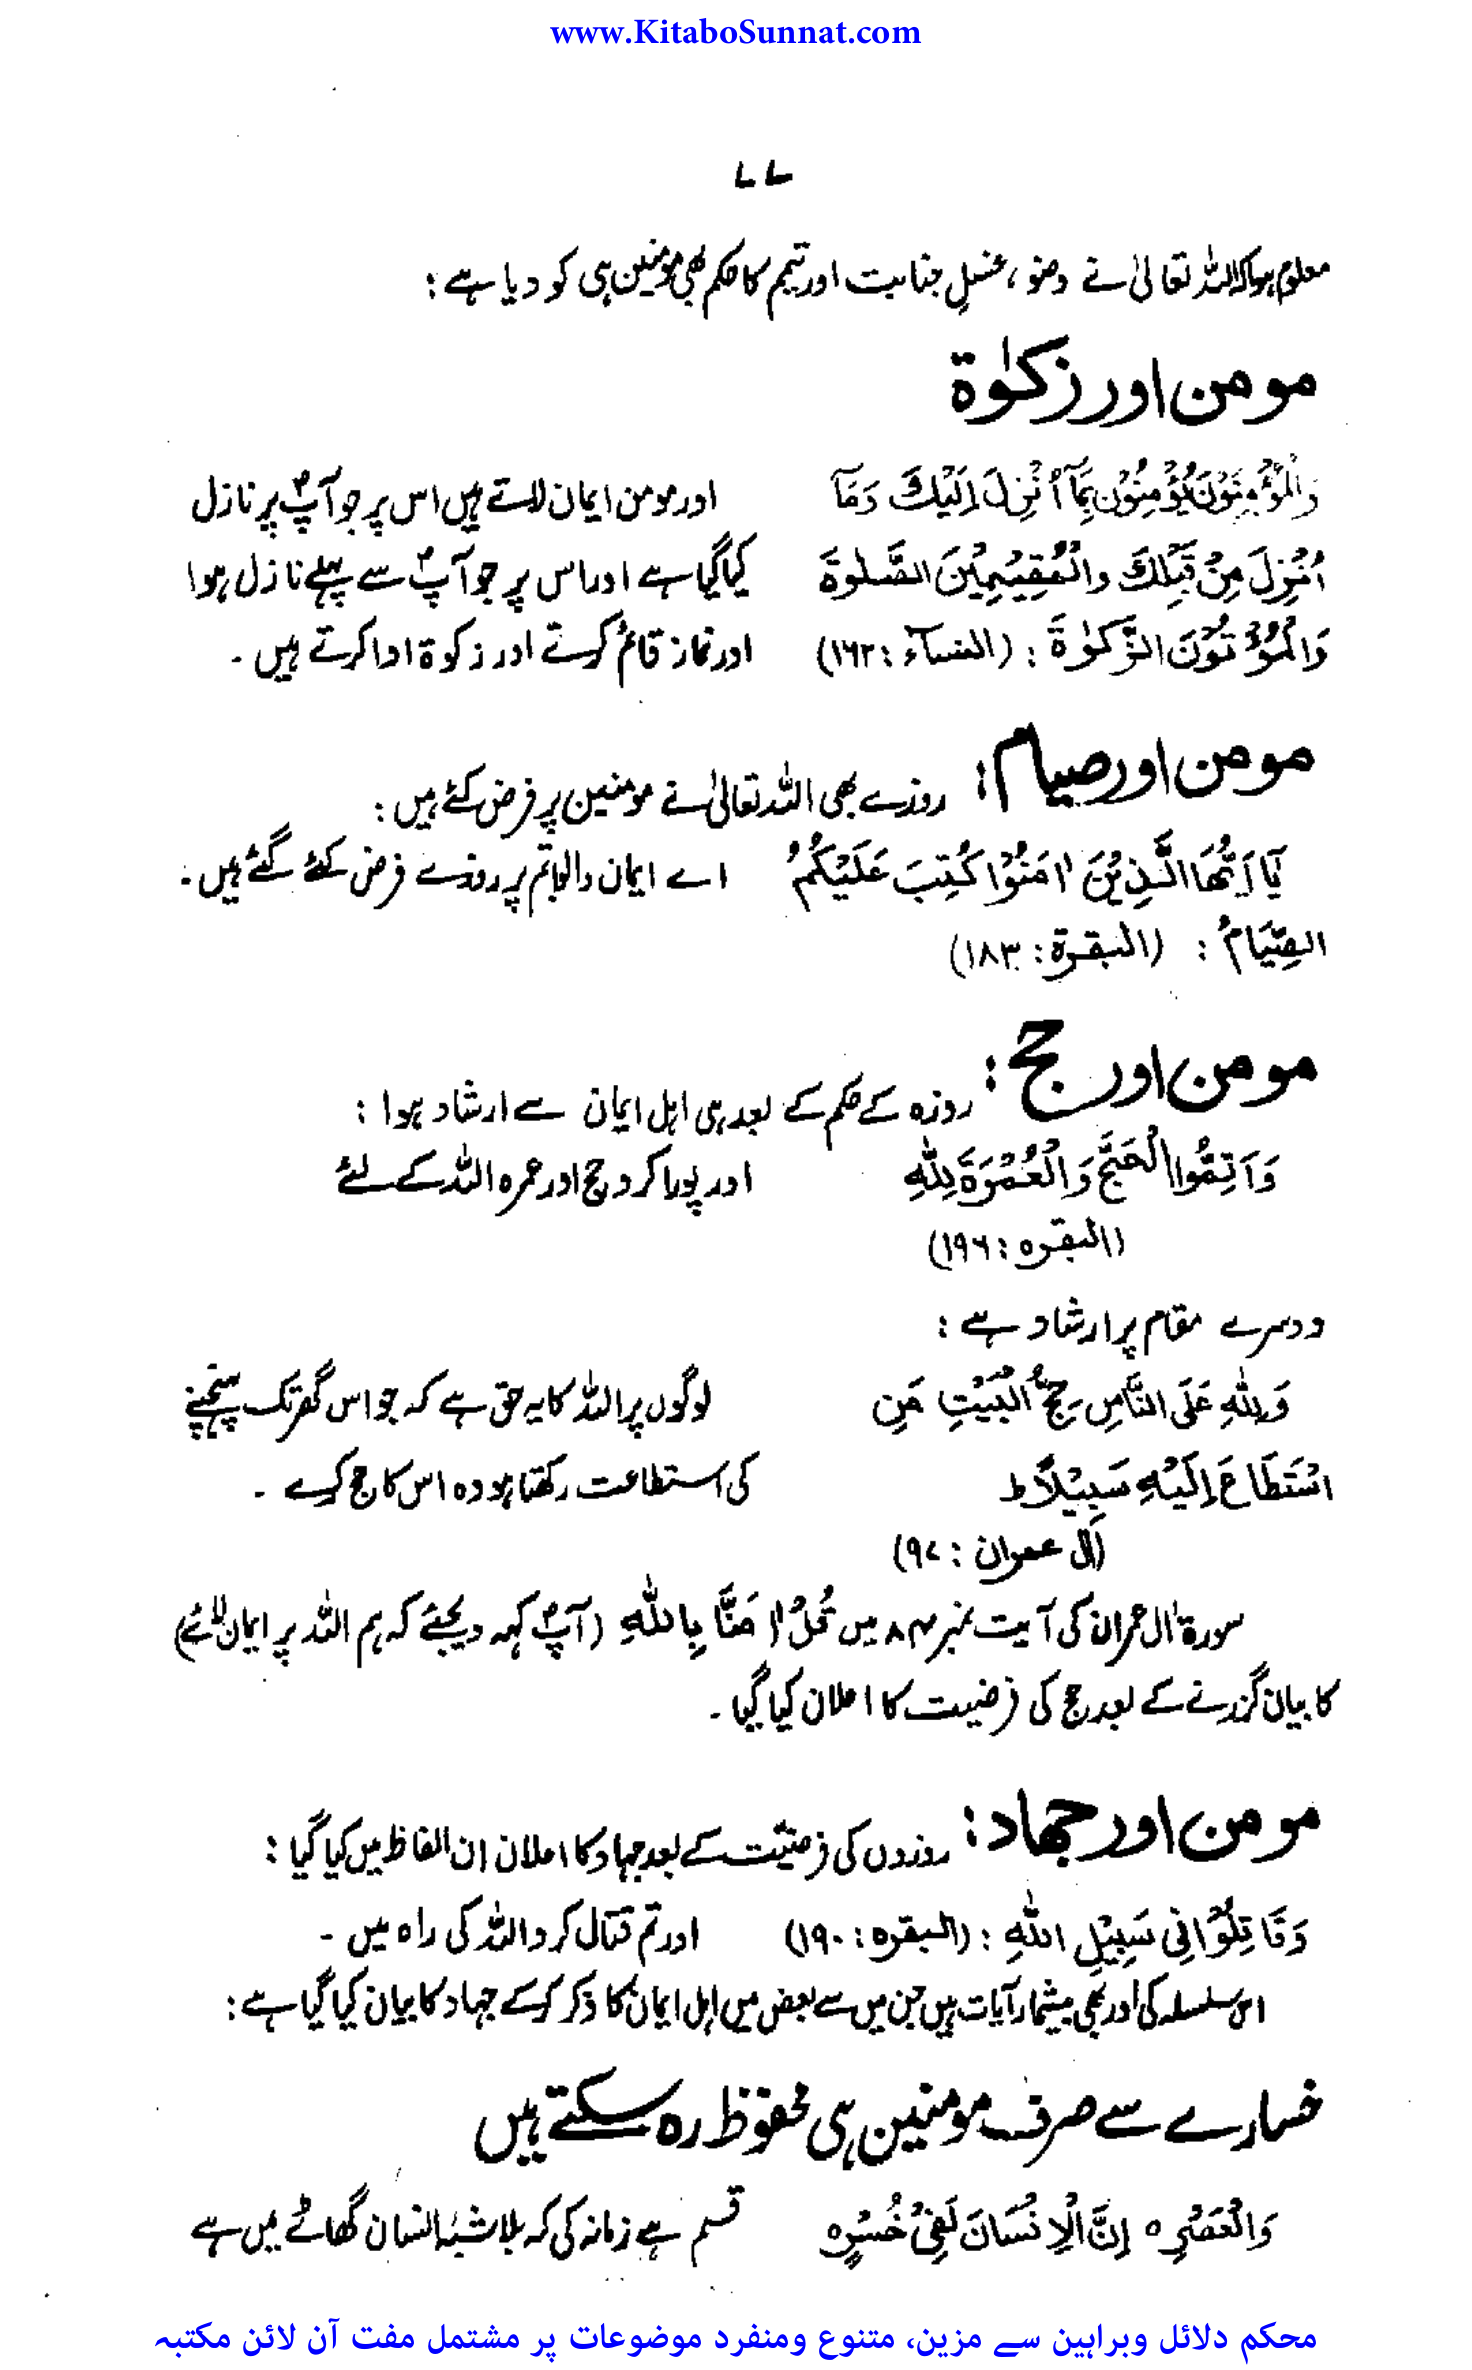 www.KitaboSunnat.com
۷۷
معلوم ہوا کہ اللہ تعالیٰ نے وضو، غسلِ جنابت اور تیمم کا حکم بھی مومنین ہی کو دیا ہے:
مومن اور زکوٰة
وَالْمُؤْمِنُوْنَ يُؤْمِنُوْنَ بِمَآ اُنْزِلَ اِلَيْكَ وَمَآ اور مومن ایمان لاتے ہیں اس پر جو آپؐ پر نازل
اُنْزِلَ مِنْ قَبْلِكَ والْمُقِيْمِيْنَ الصَّلٰوةَ کیا گیا ہے اور اس پر جو آپؐ سے پہلے نازل ہوا
وَالْمُؤْتُوْنَ الزَّكٰوةَ : (النساء : ۱۶۲) اور نماز قائم کرتے اور زکوة ادا کرتے ہیں ۔
مومن اور صیام: روزے بھی اللہ تعالیٰ نے مومنین پر فرض کئے ہیں :
يَآ اَيُّهَا الَّذِيْنَ اٰمَنُوْا كُتِبَ عَلَيْكُمُ اے ایمان والو! تم پر روزے فرض کئے گئے ہیں ۔
الصِّيَامُ : (البقرة : ۱۸۳)
مومن اور حج : روزہ کے حکم کے بعد ہی اہل ایمان سے ارشاد ہوا :
وَاَتِمُّوا الْحَجَّ وَالْعُمْرَةَ لِلّٰهِ اور پورا کرو حج اور عمرہ اللہ کے لئے
(البقرہ : ۱۹۶)
دوسرے مقام پر ارشاد ہے :
وَلِلّٰهِ عَلَى النَّاسِ حِجُّ الْبَيْتِ مَنِ لوگوں پر اللہ کا یہ حق ہے کہ جو اس گھر تک پہنچنے
اسْتَطَاعَ اِلَيْهِ سَبِيْلًا ط کی استطاعت رکھتا ہو وہ اس کا حج کرے ۔
(اٰل عمران : ۹۷)
سورة اٰل عمران کی آیت نمبر ۸۴ میں قُلْ اٰمَنَّا بِاللّٰهِ (آپؐ کہہ دیجئے کہ ہم اللہ پر ایمان لائے)
کا بیان گزرنے کے بعد حج کی فرضیت کا اعلان کیا گیا ۔
مومن اور جہاد : روزوں کی فرضیت کے بعد جہاد کا اعلان ان الفاظ میں کیا گیا :
وَقَاتِلُوْا فِىْ سَبِيْلِ اللّٰهِ : (البقرہ : ۱۹۰) اور تم قتال کرو اللہ کی راہ میں ۔
اس سلسلہ کی اور بھی بیشمار آیات ہیں جن میں سے بعض میں اہل ایمان کا ذکر کر کے جہاد کا بیان کیا گیا ہے :
خسارے سے صرف مومنین ہی محفوظ رہ سکتے ہیں
وَالْعَصْرِ ہ اِنَّ الْاِنْسَانَ لَفِىْ خُسْرٍ ہ قسم ہے زمانہ کی کہ بلا شبہ انسان گھاٹے میں ہے
محکم دلائل وبراہین سے مزین، متنوع ومنفرد موضوعات پر مشتمل مفت آن لائن مکتبہ